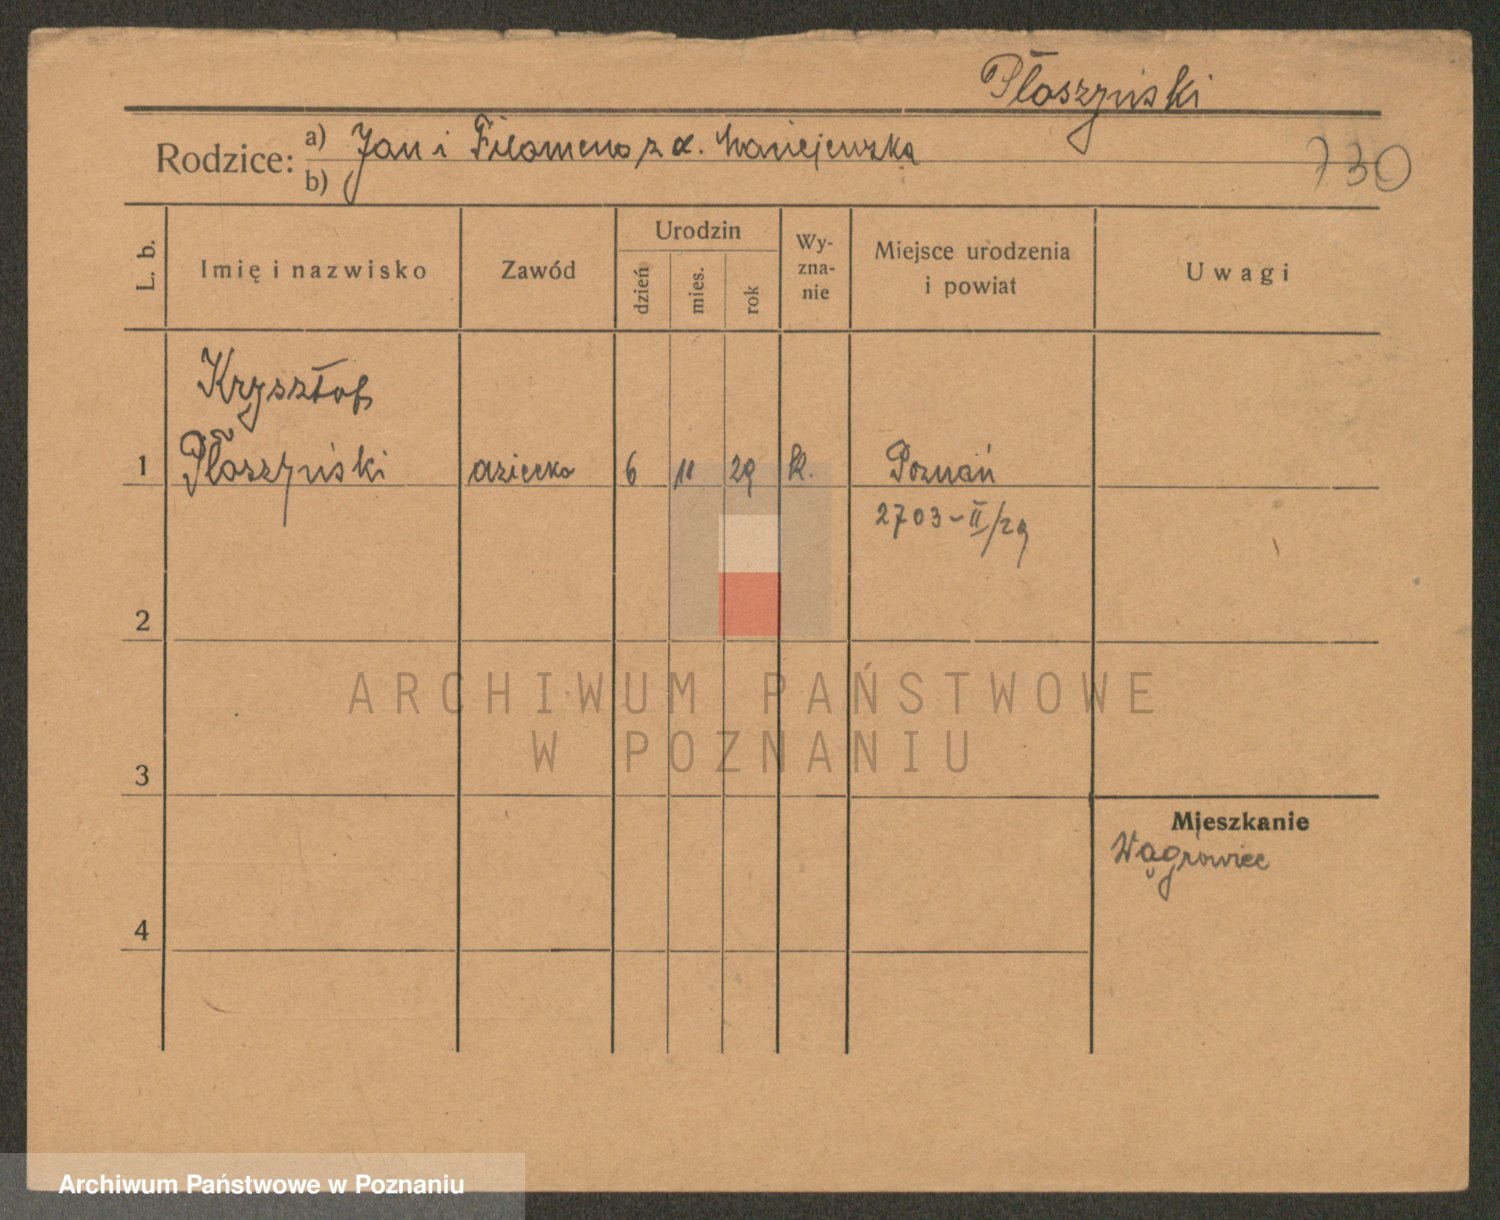 Płoszyński
Rodzice: a) Jan i Filomena z d. Maciejewska
b)
730
L. b. Imię i nazwisko Zawód Urodzin dzień mies. rok Wyzna-nie Miejsce urodzenia i powiat Uwagi
Krysztof
1 Płoszyński dziecko 6 11 29 k. Poznań
2703-II/29
2
ARCHIWUM PAŃSTWOWE
W POZNANIU
3
Mieszkanie
Wągrowiec
4
Archiwum Państwowe w Poznaniu